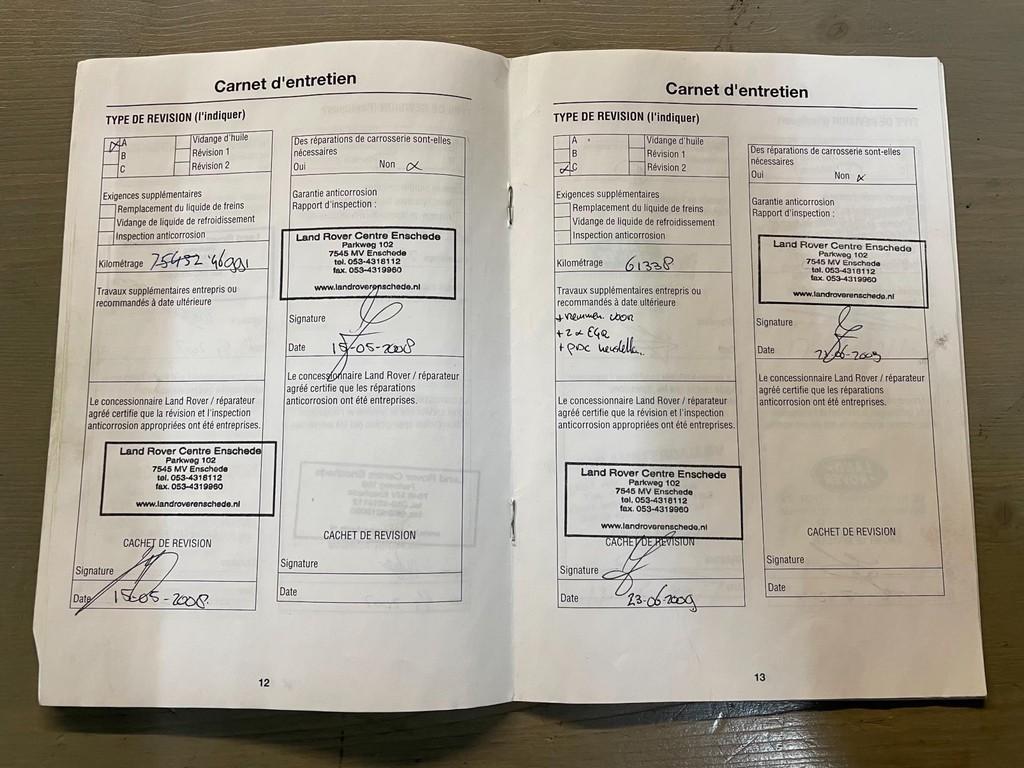 Carnet d'entretien
TYPE DE REVISION (l'indiquer)
A
B
C
Vidange d'huile
Révision 1
Révision 2
Exigences supplémentaires
Remplacement du liquide de freins
Vidange de liquide de refroidissement
Inspection anticorrosion
Kilométrage
Travaux supplémentaires entrepris ou
recommandés à date ultérieure
Le concessionnaire Land Rover / réparateur
agréé certifie que la révision et l'inspection
anticorrosion appropriées ont été entreprises.
Land Rover Centre Enschede
Parkweg 102
7545 MV Enschede
tel. 053-4318112
fax. 053-4319960
www.landroverenschede.nl
CACHET DE REVISION
Signature
Date 15-05-2008
Des réparations de carrosserie sont-elles
nécessaires
Oui Non x
Garantie anticorrosion
Rapport d'inspection :
Land Rover Centre Enschede
Parkweg 102
7545 MV Enschede
tel. 053-4318112
fax. 053-4319960
www.landroverenschede.nl
Signature
Date 15-05-2008
Le concessionnaire Land Rover / réparateur
agréé certifie que les réparations
anticorrosion ont été entreprises.
CACHET DE REVISION
Signature
Date
12
Carnet d'entretien
TYPE DE REVISION (l'indiquer)
A
B
C
Vidange d'huile
Révision 1
Révision 2
Exigences supplémentaires
Remplacement du liquide de freins
Vidange de liquide de refroidissement
Inspection anticorrosion
Kilométrage 61338
Travaux supplémentaires entrepris ou
recommandés à date ultérieure
+ remmen voor
+ 2x EGR
+ PDC herstellen
Le concessionnaire Land Rover / réparateur
agréé certifie que la révision et l'inspection
anticorrosion appropriées ont été entreprises.
Land Rover Centre Enschede
Parkweg 102
7545 MV Enschede
tel. 053-4318112
fax. 053-4319960
www.landroverenschede.nl
CACHET DE REVISION
Signature
Date 23-06-2009
Des réparations de carrosserie sont-elles
nécessaires
Oui Non x
Garantie anticorrosion
Rapport d'inspection :
Land Rover Centre Enschede
Parkweg 102
7545 MV Enschede
tel. 053-4318112
fax. 053-4319960
www.landroverenschede.nl
Signature
Date 23-06-2009
Le concessionnaire Land Rover / réparateur
agréé certifie que les réparations
anticorrosion ont été entreprises.
CACHET DE REVISION
Signature
Date
13